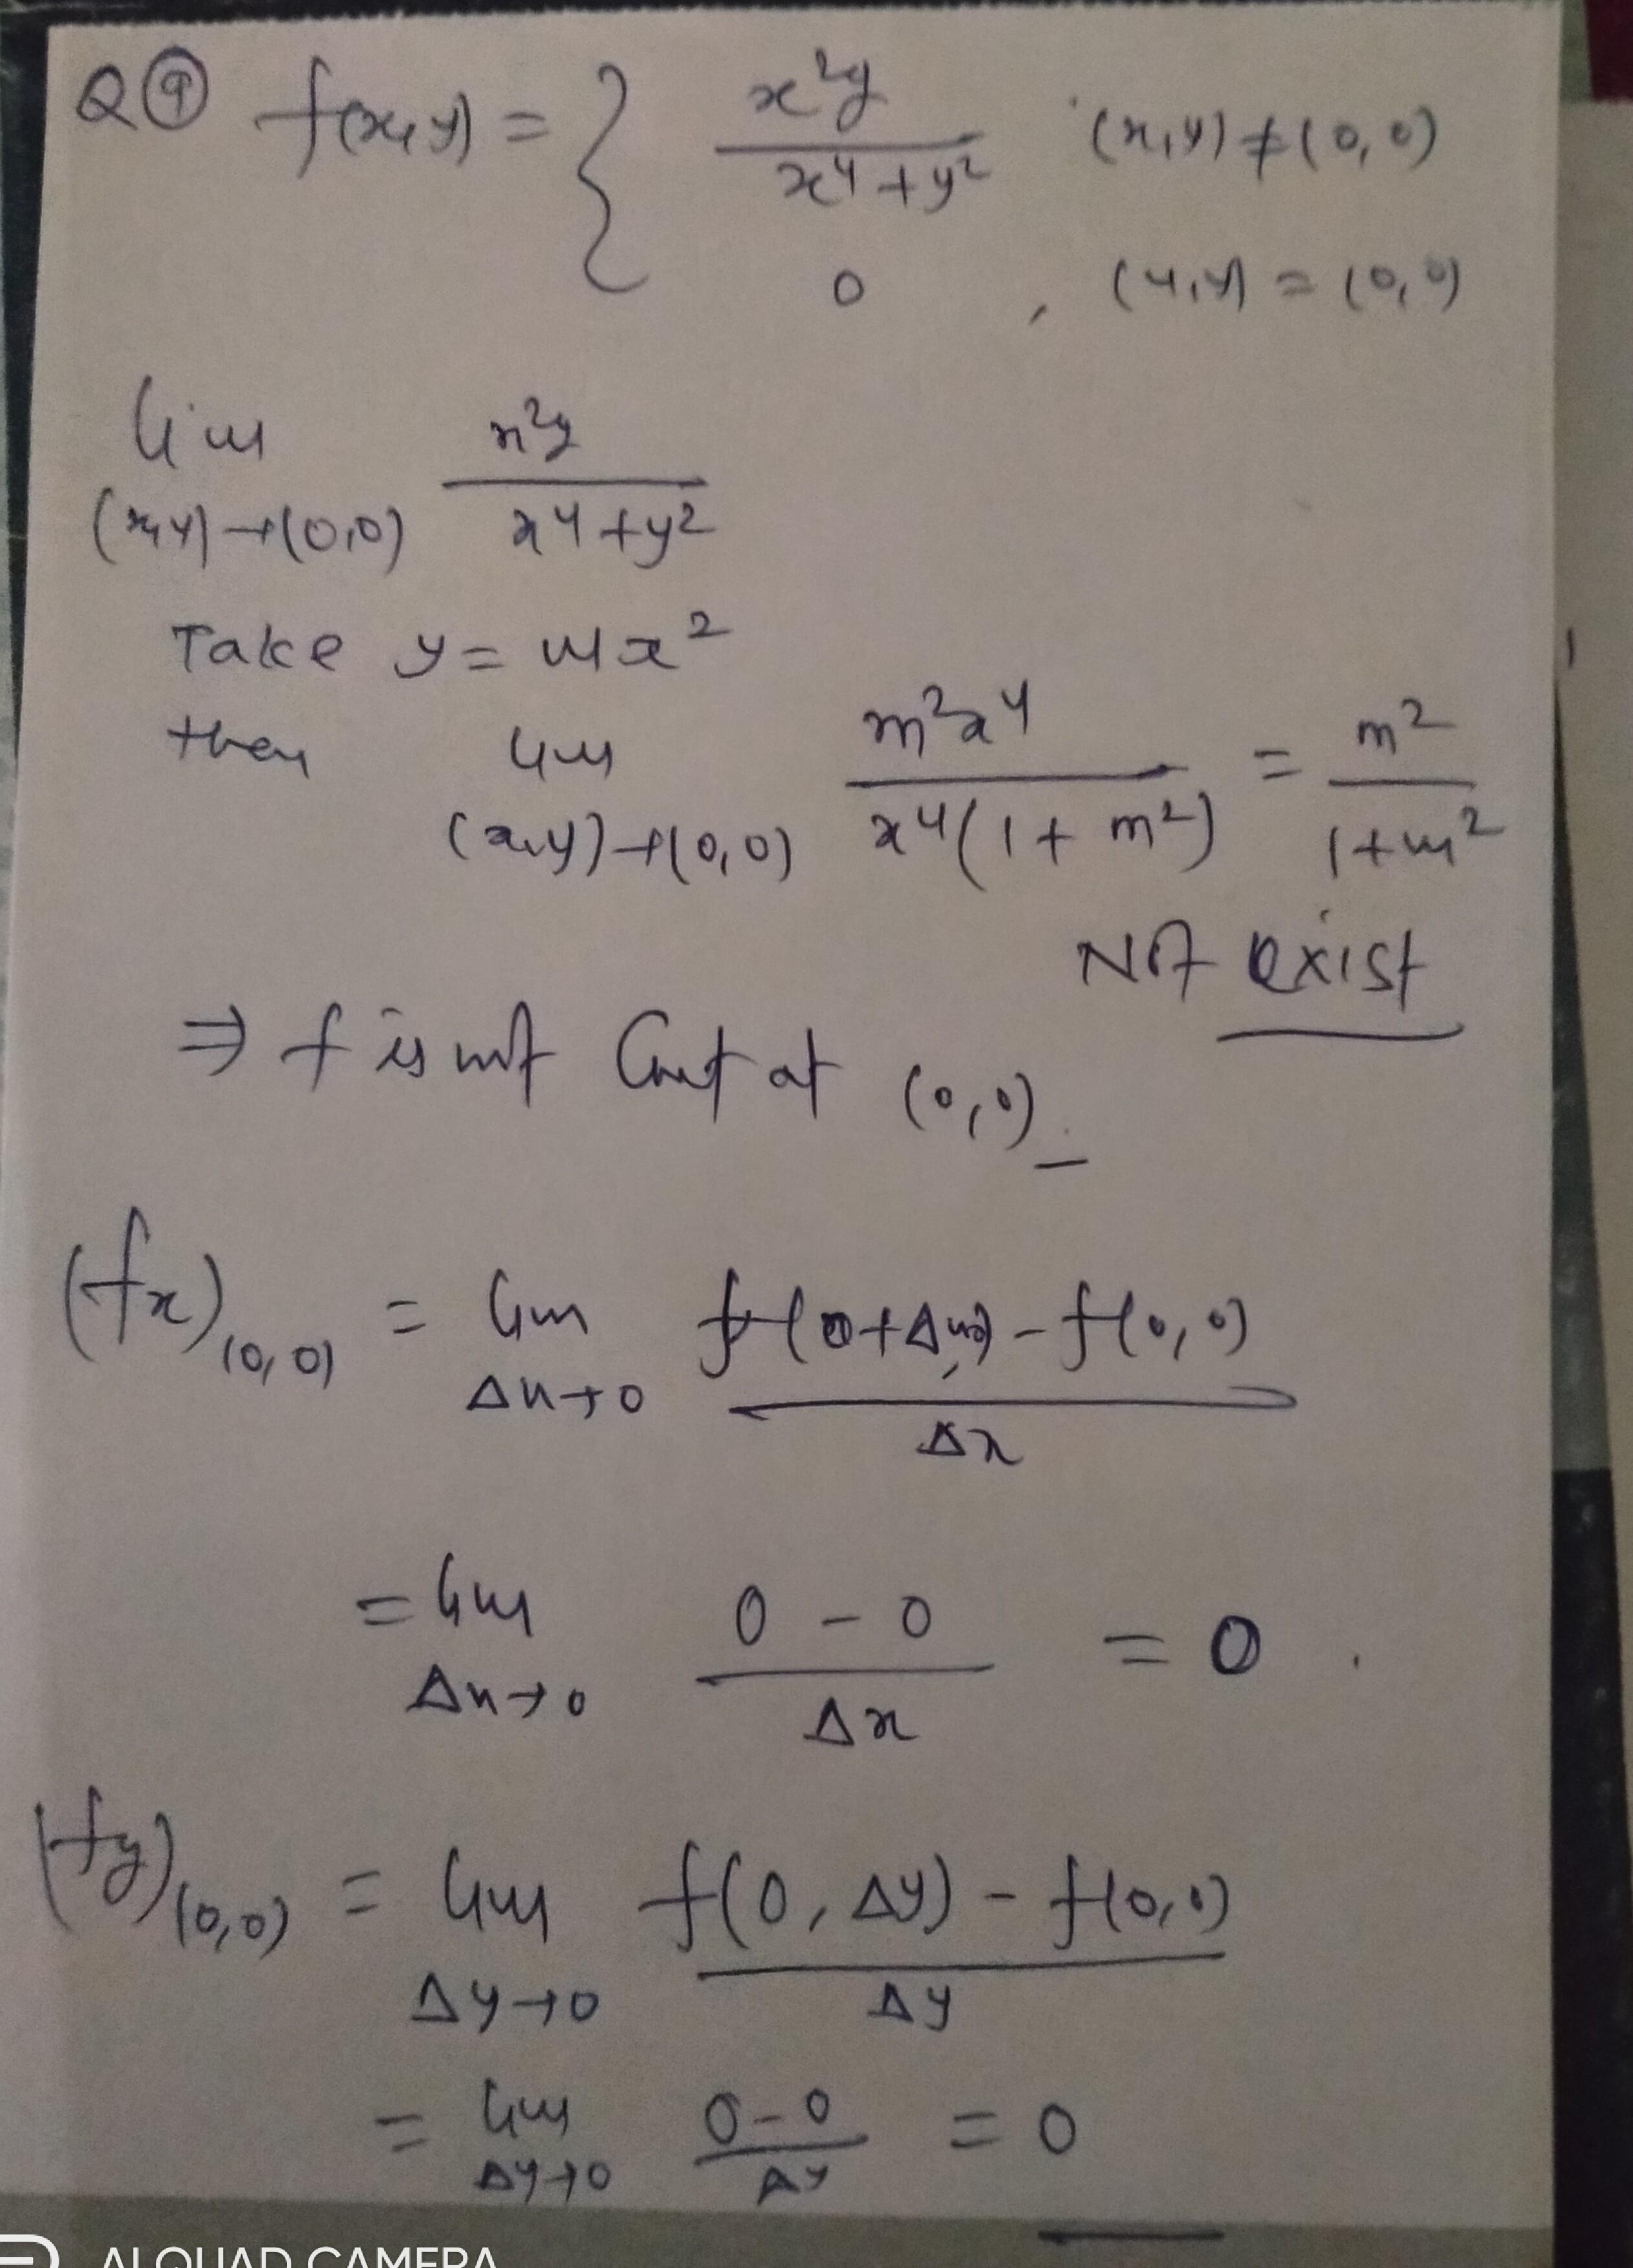 Q⑨ f(x,y) = { x²y / x⁴+y² , (x,y) ≠ (0,0)
0 , (x,y) = (0,0)
lim (x,y)→(0,0) x²y / x⁴+y²
Take y = mx²
then lim (x,y)→(0,0) m²x⁴ / x⁴(1+m²) = m² / 1+m²
Not exist
⇒ f is not Cont at (0,0)
(fx)(0,0) = lim Δx→0 f(0+Δx,0) - f(0,0) / Δx
= lim Δx→0 0-0 / Δx = 0.
(fy)(0,0) = lim Δy→0 f(0,Δy) - f(0,0) / Δy
= lim Δy→0 0-0 / Δy = 0
AI QUAD CAMERA